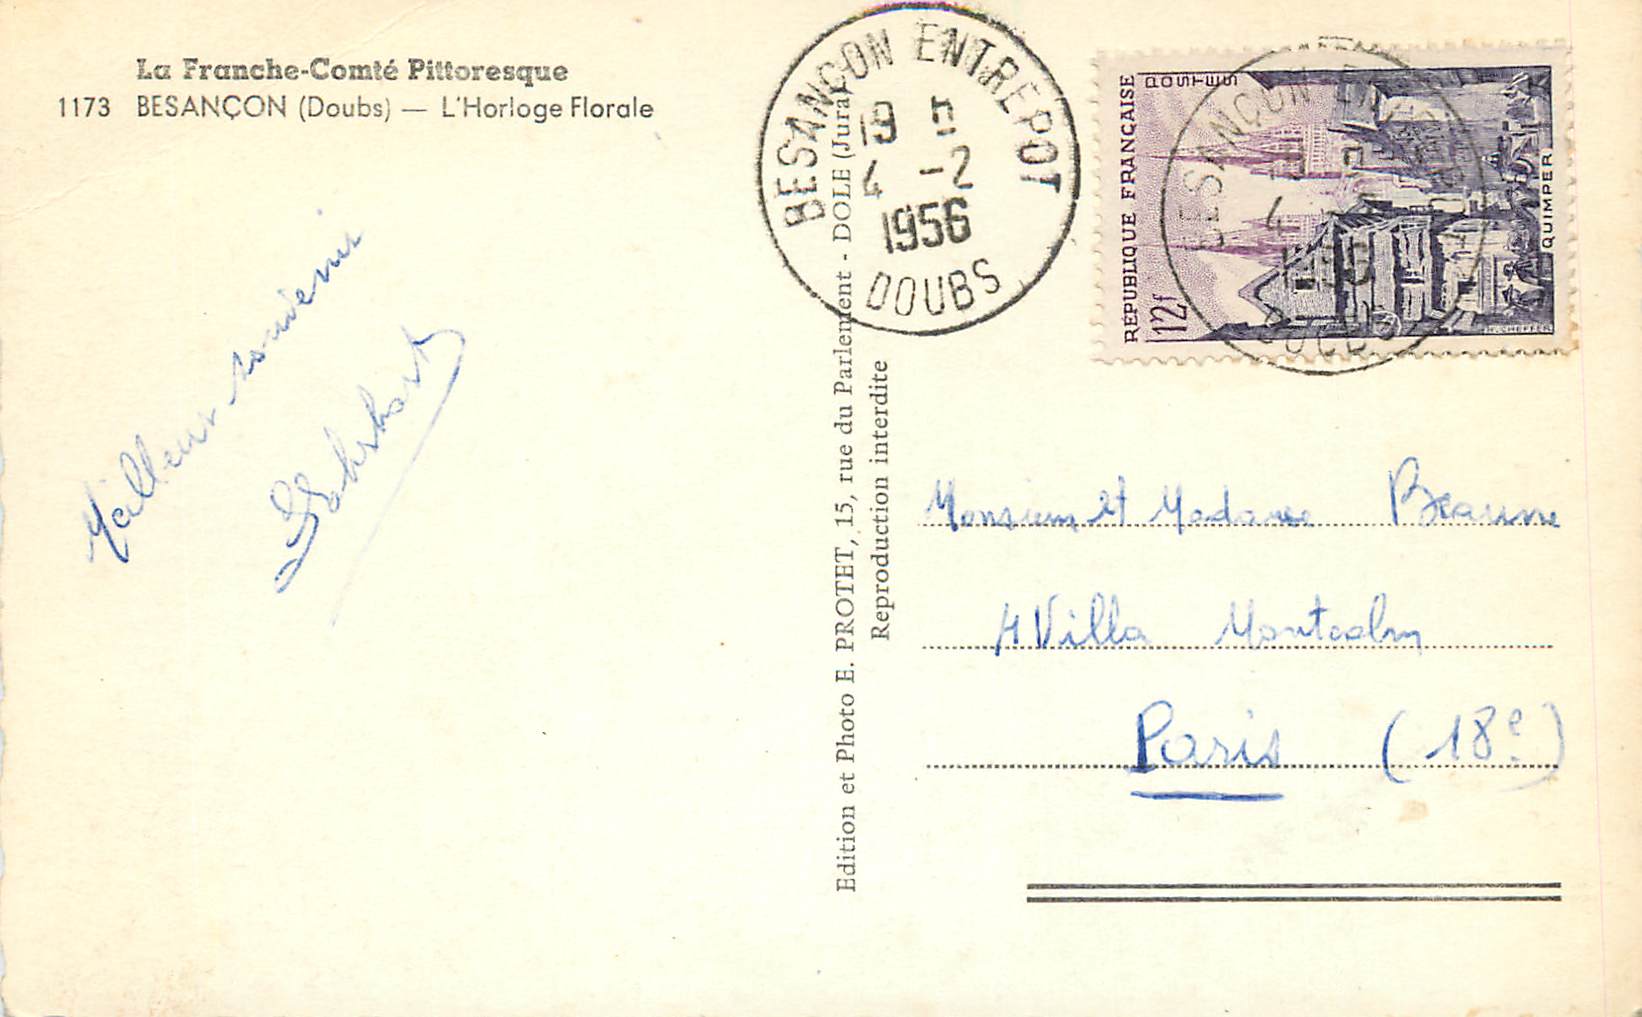 La Franche-Comté Pittoresque
1173 BESANÇON (Doubs) — L'Horloge Florale
Meilleur souvenir
BESANÇON ENTREPOT
19 H
4 -2
1956
DOUBS
RÉPUBLIQUE FRANÇAISE
POSTES
12f
QUIMPER
H. CHEFFER
Edition et Photo E. PROTET, 15, rue du Parlement - DOLE (Jura)
Reproduction interdite
Monsieur et Madame Beaune
4 Villa Montcalm
Paris (18e)